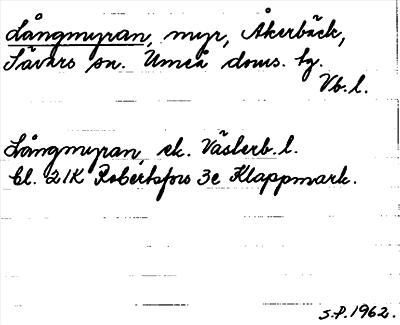 Långmyran, myr, Åkerbäck,
Sävars sn. Umeå doms. hg.
Vb. l.
Långmyran, ek. Västerb. l.
bl. 21K Robertsfors 3e Klappmark.
S.P. 1962.